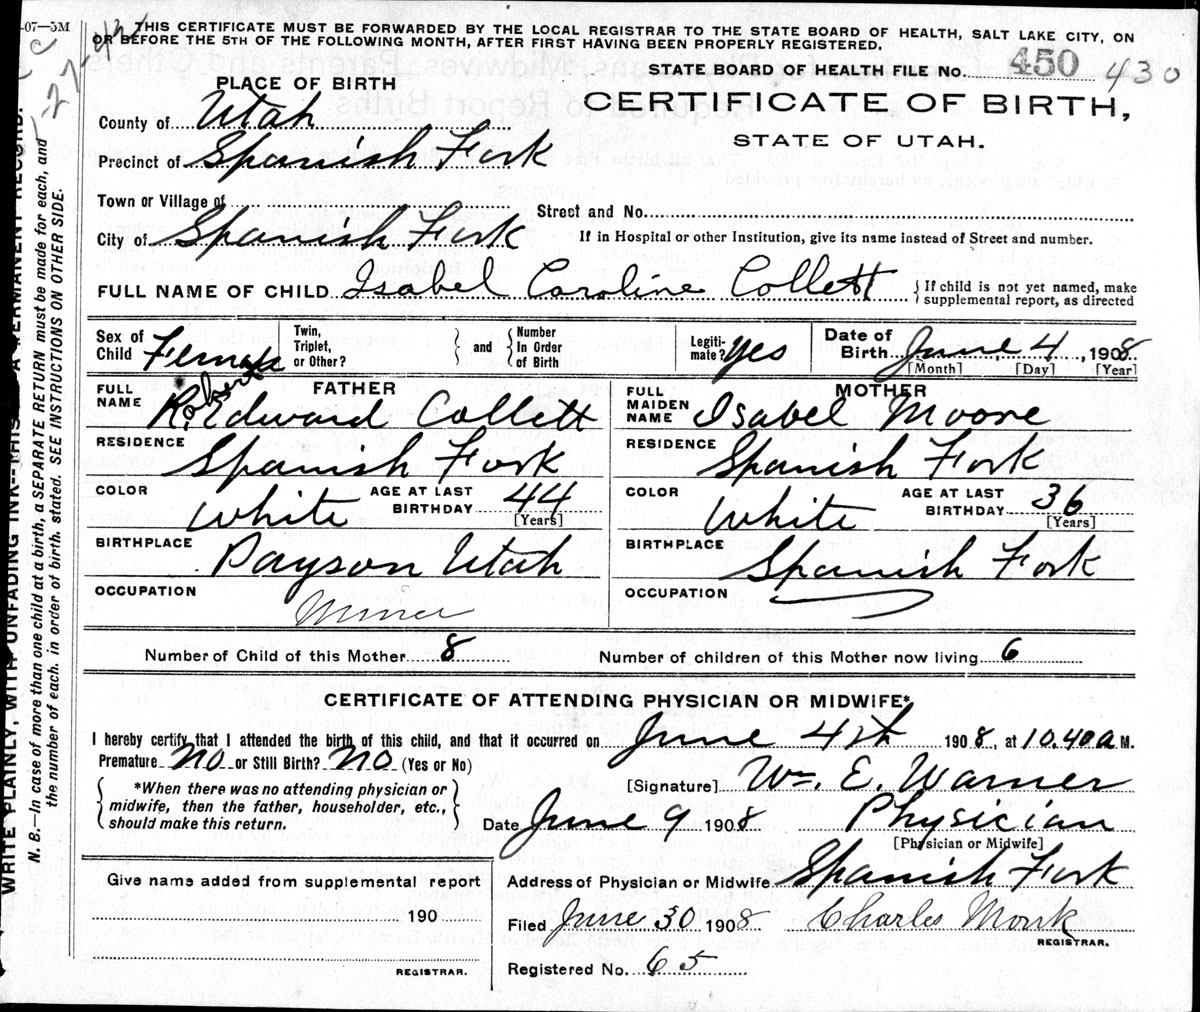 -07—5M
THIS CERTIFICATE MUST BE FORWARDED BY THE LOCAL REGISTRAR TO THE STATE BOARD OF HEALTH, SALT LAKE CITY, ON
OR BEFORE THE 5TH OF THE FOLLOWING MONTH, AFTER FIRST HAVING BEEN PROPERLY REGISTERED.
STATE BOARD OF HEALTH FILE No. 450 430
PLACE OF BIRTH
CERTIFICATE OF BIRTH,
STATE OF UTAH.
County of Utah
Precinct of Spanish Fork
Town or Village of
Street and No.
City of Spanish Fork
If in Hospital or other Institution, give its name instead of Street and number.
FULL NAME OF CHILD Isabel Caroline Collett { If child is not yet named, make supplemental report, as directed
Sex of Child Female
Twin, Triplet, or Other? } and { Number In Order of Birth
Legiti-mate? yes
Date of Birth June 4, 1908
[Month] [Day] [Year]
FATHER
FULL NAME Robert R. Edward Collett
MOTHER
FULL MAIDEN NAME Isabel Moore
RESIDENCE Spanish Fork
RESIDENCE Spanish Fork
COLOR White AGE AT LAST BIRTHDAY 44 [Years]
COLOR White AGE AT LAST BIRTHDAY 36 [Years]
BIRTHPLACE Payson Utah
BIRTHPLACE Spanish Fork
OCCUPATION Miner
OCCUPATION
Number of Child of this Mother 8
Number of children of this Mother now living 6
CERTIFICATE OF ATTENDING PHYSICIAN OR MIDWIFE*
I hereby certify that I attended the birth of this child, and that it occurred on June 4th 1908, at 10.40 a M.
Premature No or Still Birth? No (Yes or No)
{ *When there was no attending physician or midwife, then the father, householder, etc., should make this return. }
[Signature] Wm. E. Warner
Date June 9 1908 Physician
[Physician or Midwife]
Give name added from supplemental report
190
REGISTRAR.
Address of Physician or Midwife Spanish Fork
Filed June 30 1908 Charles Monk
REGISTRAR.
Registered No. 65
WRITE PLAINLY, WITH UNFADING INK--THIS IS A PERMANENT RECORD.
N. B.—In case of more than one child at a birth, a SEPARATE RETURN must be made for each, and
the number of each, in order of birth, stated. SEE INSTRUCTIONS ON OTHER SIDE.